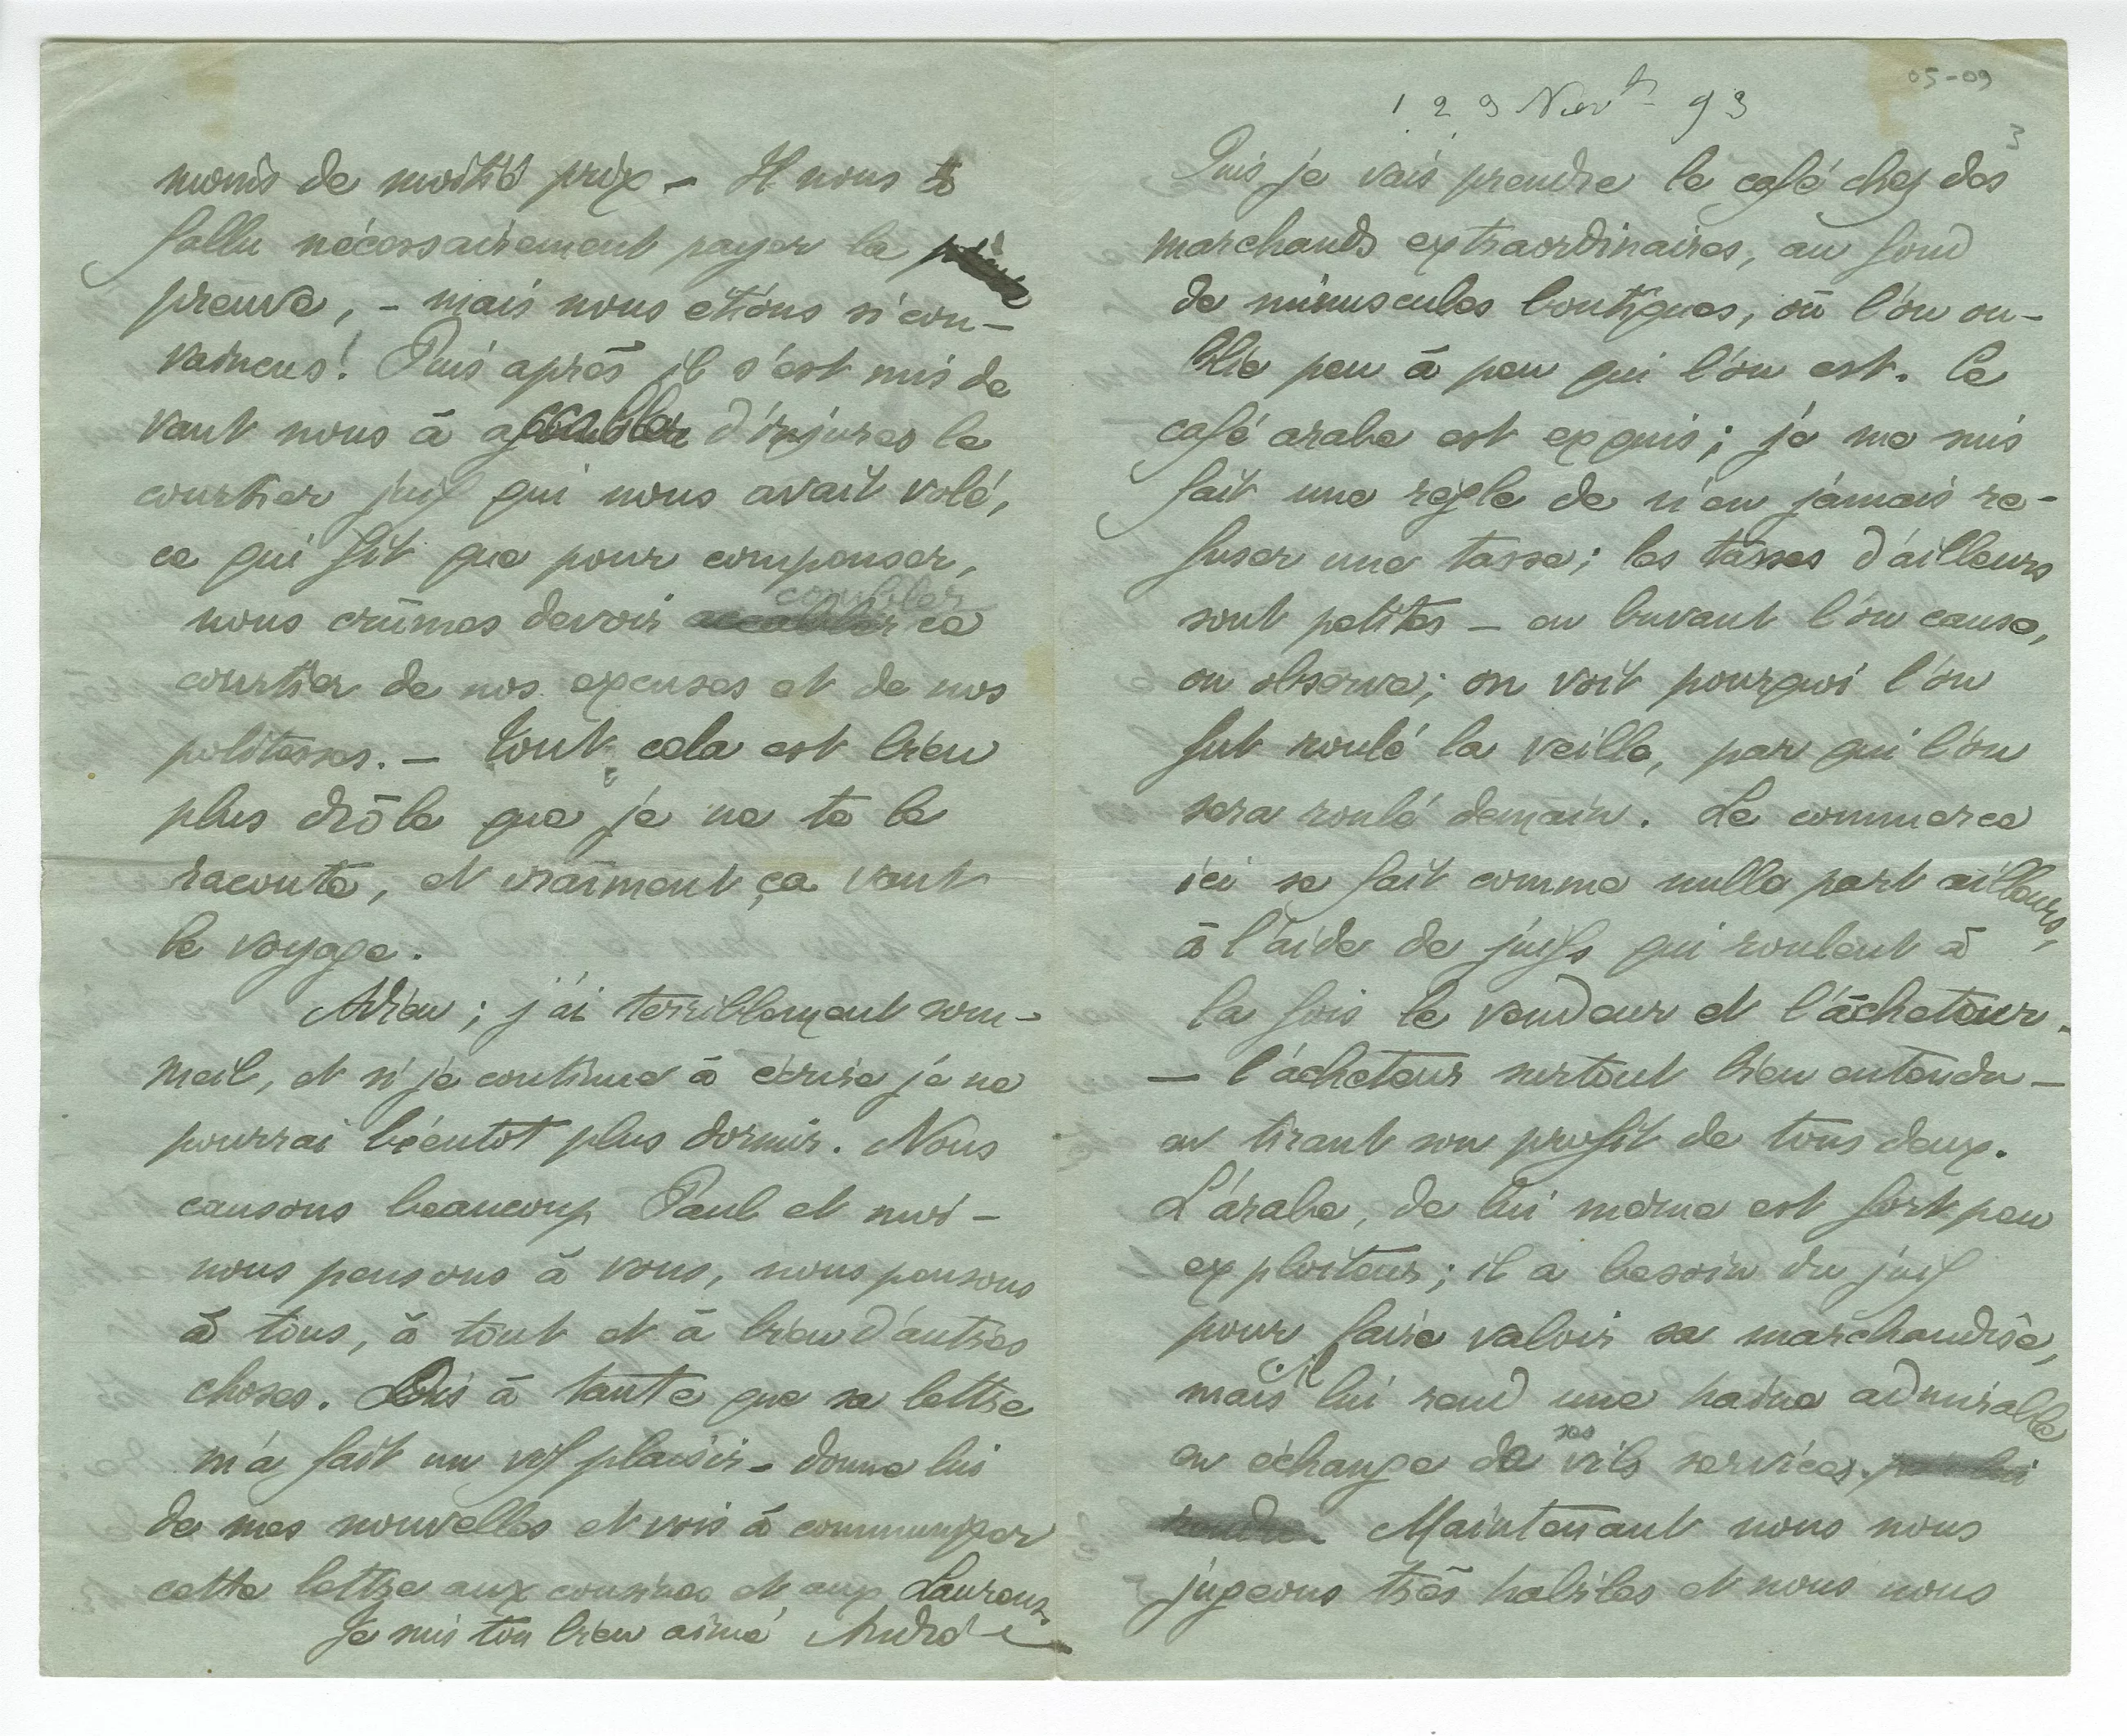 moins de moitié prix – Il nous a
fallu nécessairement payer la
preuve, – mais nous étions si con-
vaincus! Puis après il s'est mis de
vant nous à accabler d'injures le
courtier juif qui nous avait volé,
ce qui fit que pour compenser,
combler
nous crûmes devoir accabler ce
courtier de nos excuses et de nos
politesses. – Tout cela est bien
plus drôle que je ne te le
raconte, et vraiment ça vaut
le voyage.
Adieu ; j'ai terriblement som-
meil, et si je continue à écrire je ne
pourrai bientot plus dormir. Nous
causons beaucoup Paul et moi –
nous pensons à vous, nous pensons
à tous, à tout et à bien d'autres
choses. Dis à tante que sa lettre
m'a fait un vif plaisir – donne lui
de mes nouvelles et vois à communiquer
cette lettre aux cousines et aux Laurens
Je suis ton bien aimé André
05-09
1 2 9 Nov 93
3
Puis je vais prendre le café chez des
marchands extraordinaires, au fond
de minuscules boutiques, où l'on ou-
blie peu à peu qui l'on est. Le
café arabe est exquis ; je me suis
fait une règle de n'en jamais re-
fuser une tasse ; les tasses d'ailleurs
sont petites – en buvant l'on cause,
on observe ; on voit pourquoi l'on
fut roulé la veille, par qui l'on
sera roulé demain. Le commerce
ici se fait comme nulle part ailleurs,
à l'aide de juifs qui roulent à
la fois le vendeur et l'acheteur.
– l'acheteur surtout bien entendu –
en tirant son profit de tous deux.
L'arabe, de lui meme est fort peu
exploiteur ; il a besoin du juif
pour faire valoir sa marchandise,
mais il lui rend une haine admirable
en échange de ses vils services. par lui
rendus. Maintenant nous nous
jugeons très habiles et nous nous